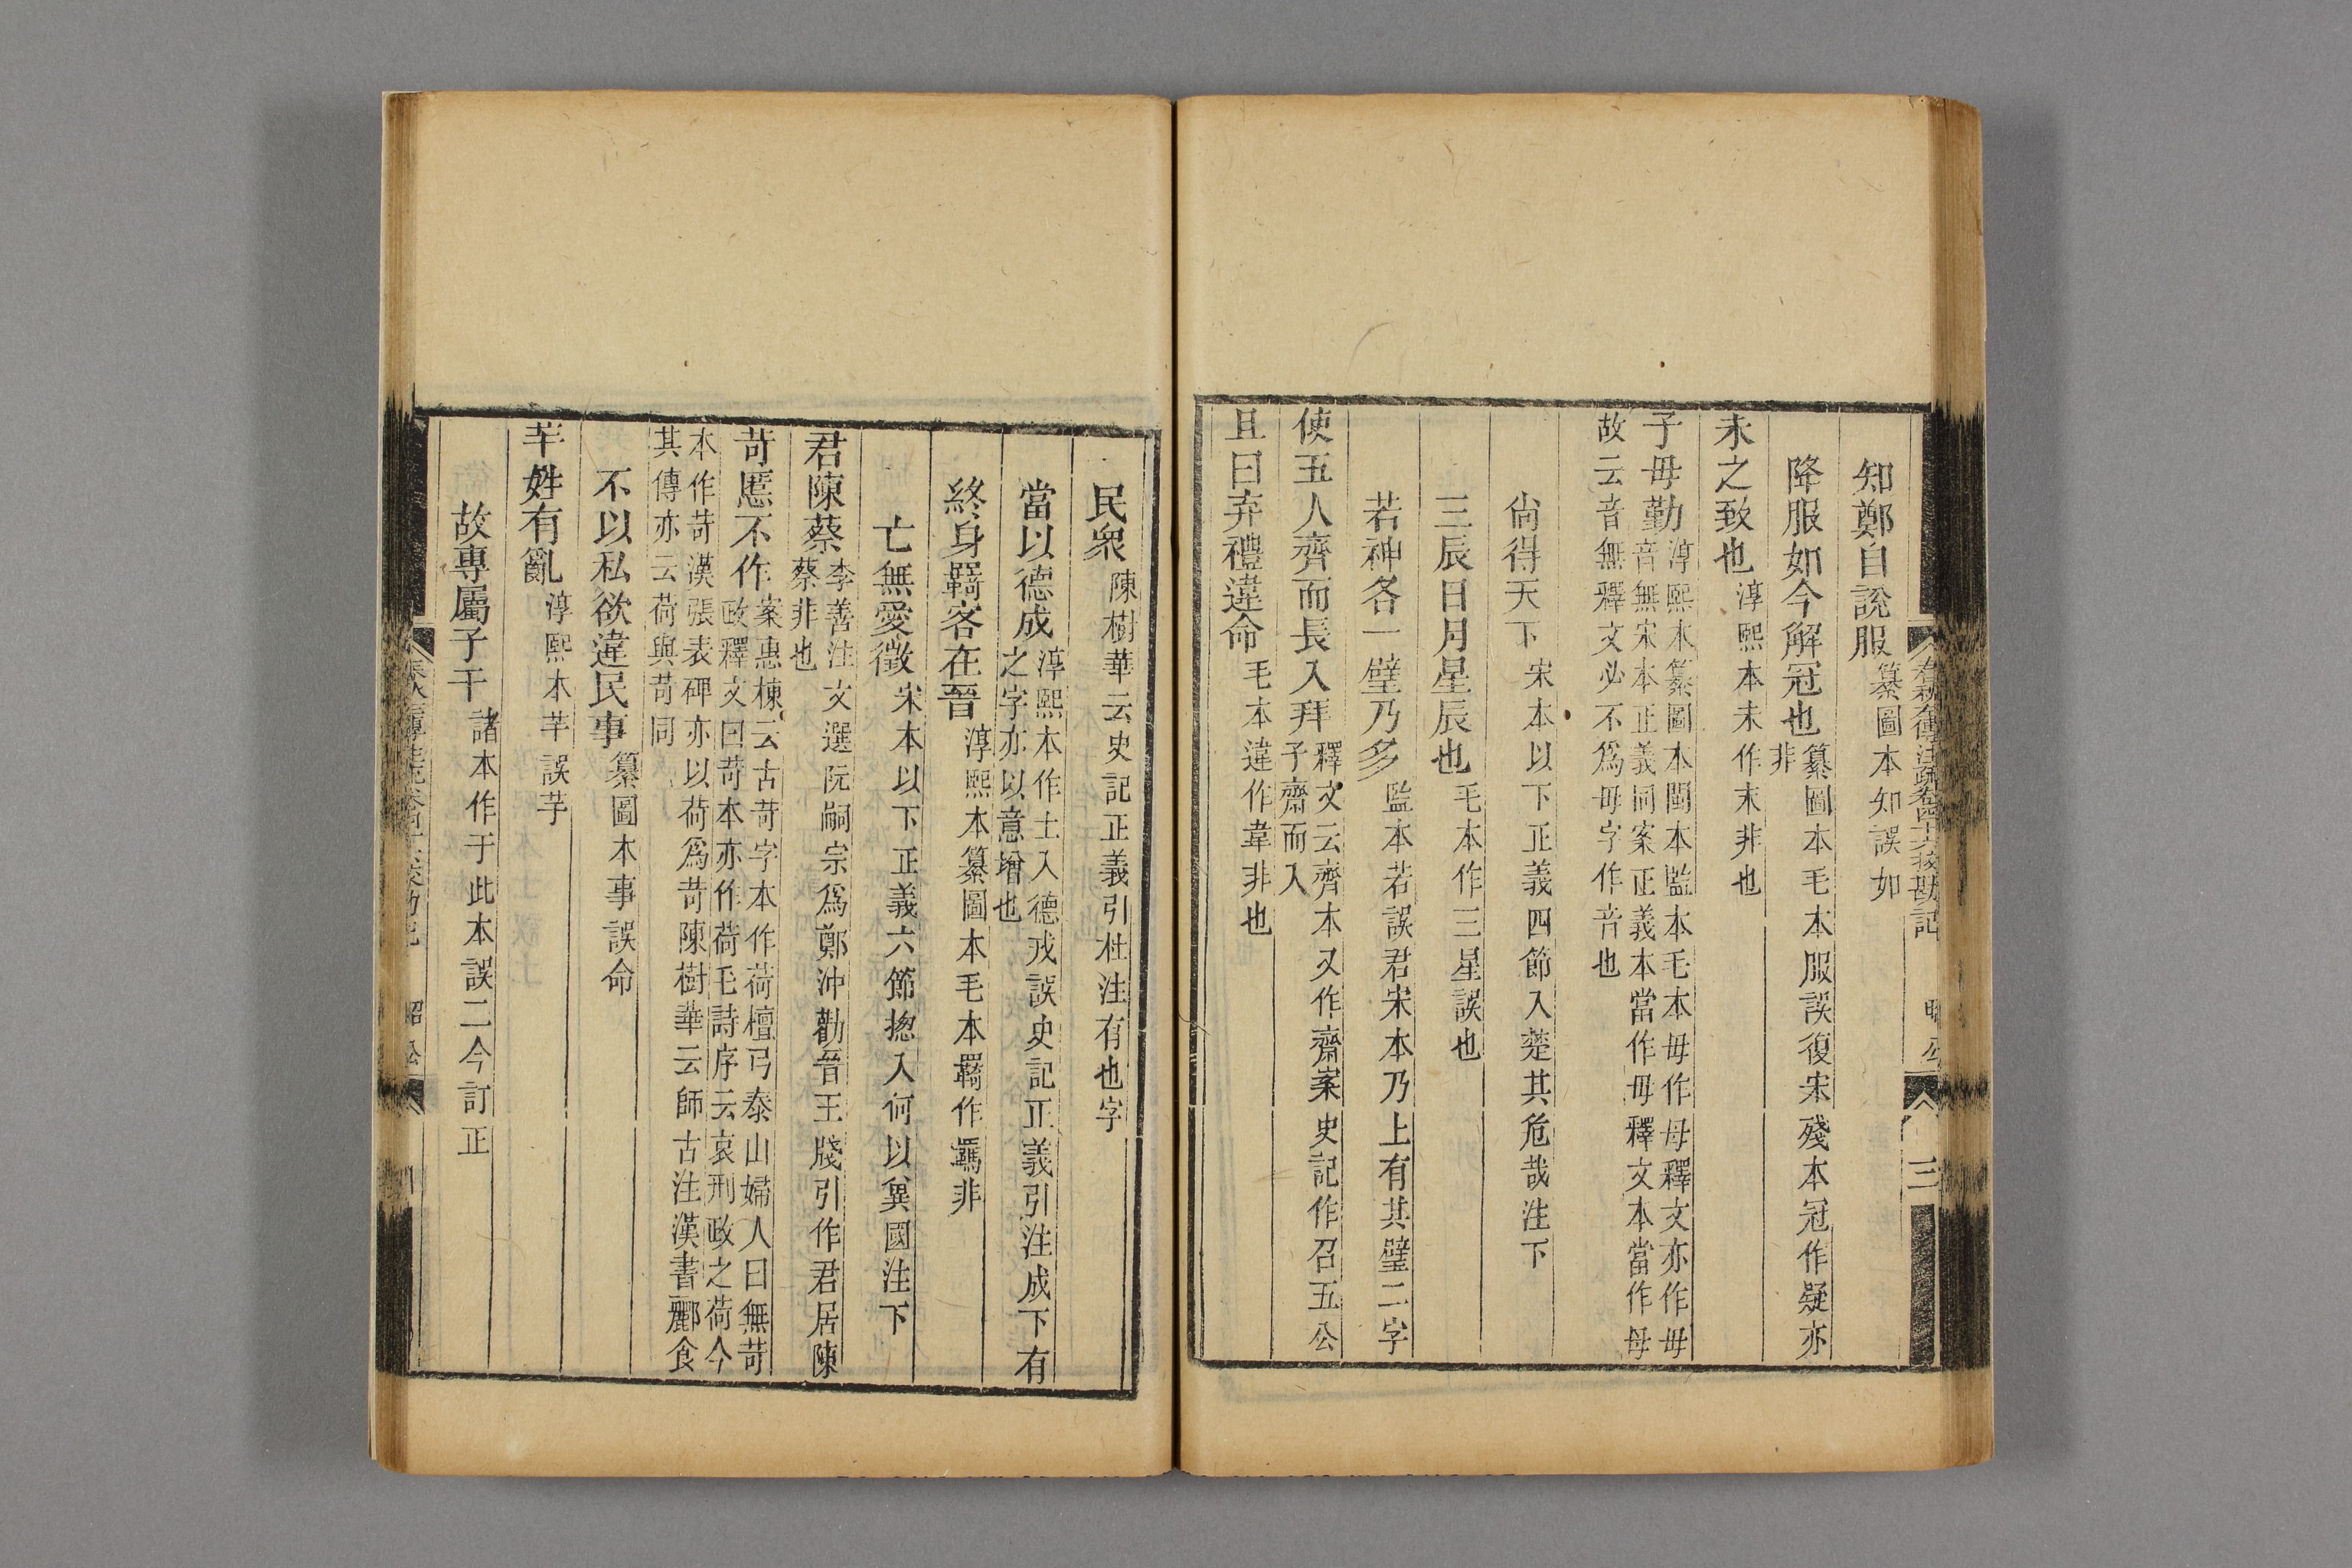 知鄭自說服纂圖本知誤如
降服如今解冠也纂圖本毛本服誤復宋殘本冠作疑亦
非
未之致也淳熙本未作末非也
子毋勤淳熙本纂圖本閩本監本毛本毋作母釋文亦作毋
音無宋本正義同案正義本當作毋釋文本當作母
故云音無釋文必不爲毋字作音也
尙得天下宋本以下正義四節入楚其危哉注下
三辰日月星辰也毛本作三星誤也
若神各一璧乃多監本若誤君宋本乃上有其璧二字
使五人齊而長入拜釋文云齊本又作齋案史記作召五公
子齋而入
且曰弃禮違命毛本違作韋非也
春秋左傳注疏卷四十六校勘記 昭公 三
民衆陳樹華云史記正義引杜注有也字
當以德成淳熙本作士入德戎誤史記正義引注成下有
之字亦以意增也
終身羇客在晉淳熙本纂圖本毛本羇作羈非
亡無愛徵宋本以下正義六節揔入何以兾國注下
君陳蔡李善注文選阮嗣宗爲鄭沖勸晉王牋引作君居陳
蔡非也
苛慝不作案惠棟云古苛字本作荷檀弓泰山婦人曰無苛
政釋文曰苛本亦作荷毛詩序云哀刑政之荷今
本作苛漢張表碑亦以荷爲苛陳樹華云師古注漢書酈食
其傳亦云荷與苛同
不以私欲違民事纂圖本事誤命
芈姓有亂淳熙本芈誤芋
故專屬子干諸本作于此本誤二今訂正
昭公